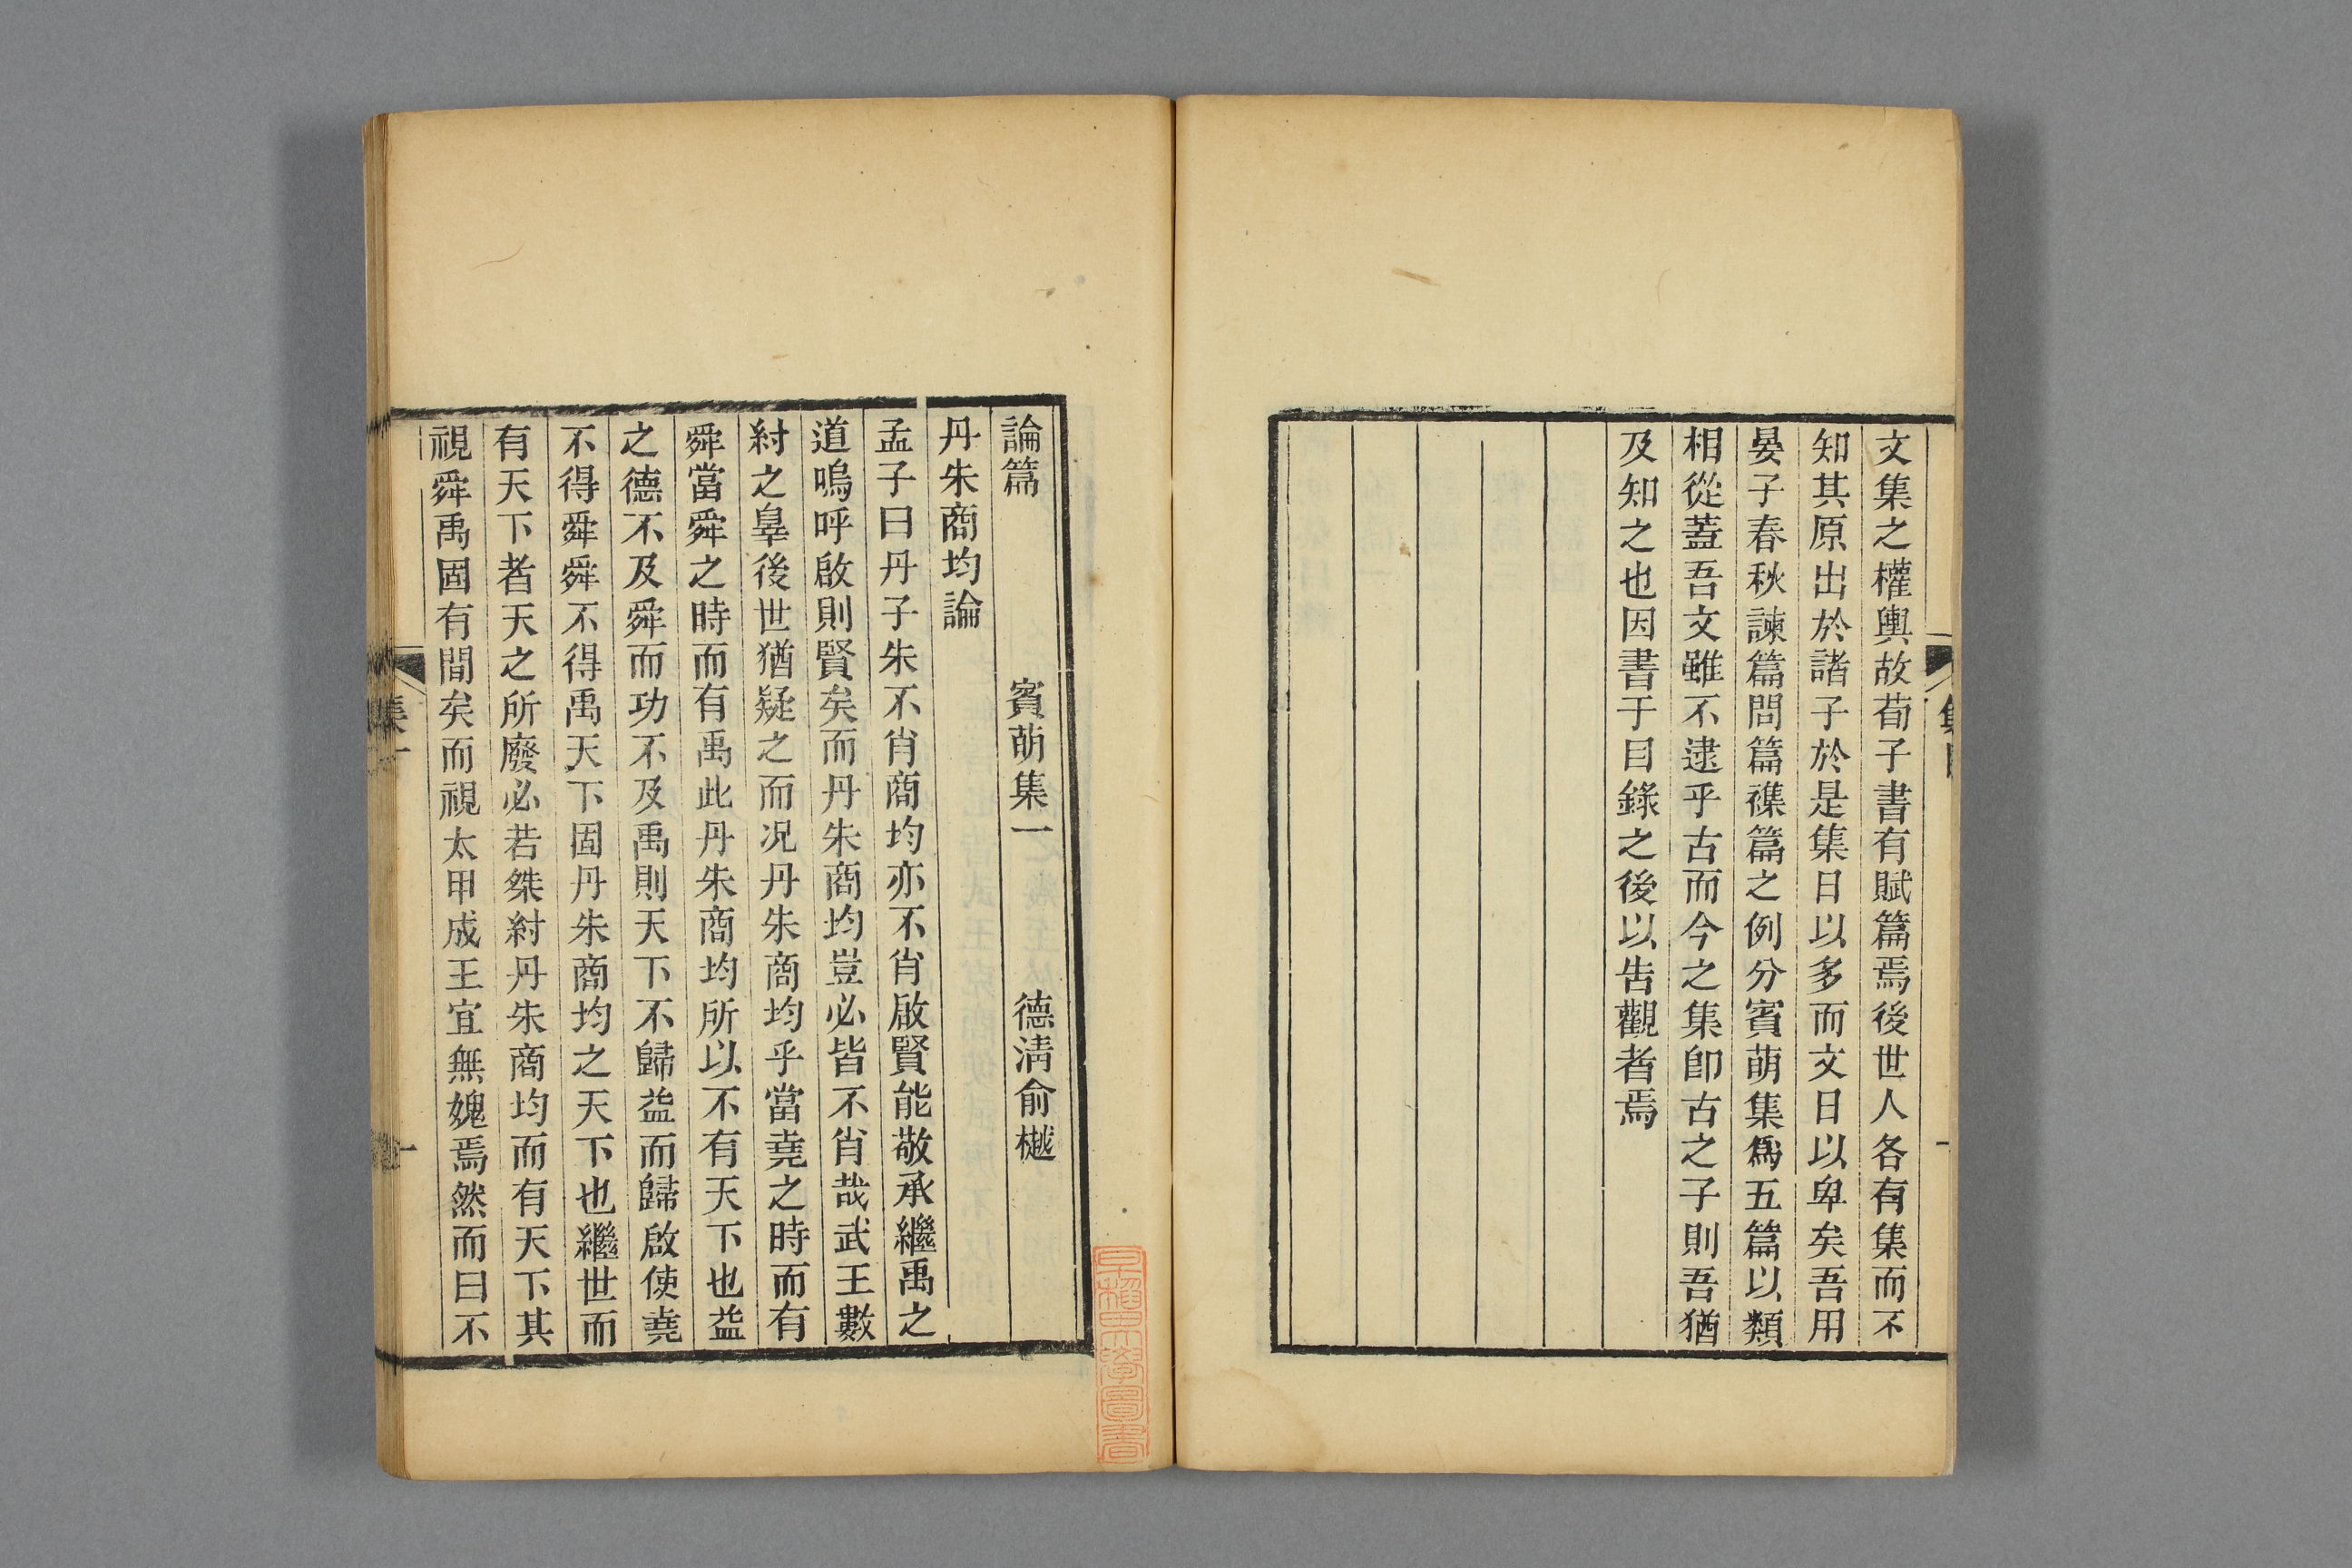 文集之權輿故荀子書有賦篇焉後世人各有集而不
知其原出於諸子於是集日以多而文日以卑矣吾用
晏子春秋諫篇問篇襍篇之例分賓萌集爲五篇以類
相從蓋吾文雖不逮乎古而今之集卽古之子則吾猶
及知之也因書于目錄之後以告觀者焉
論篇　賓萌集一　德淸俞樾
丹朱商均論
孟子曰丹子朱不肖商均亦不肖啟賢能敬承繼禹之
道嗚呼啟則賢矣而丹朱商均豈必皆不肖哉武王數
紂之辠後世猶疑之而况丹朱商均乎當堯之時而有
舜當舜之時而有禹此丹朱商均所以不有天下也益
之德不及舜而功不及禹則天下不歸益而歸啟使堯
不得舜舜不得禹天下固丹朱商均之天下也繼世而
有天下者天之所廢必若桀紂丹朱商均而有天下其
視舜禹固有間矣而視太甲成王宜無媿焉然而曰不
集一
一
早稻田大學圖書